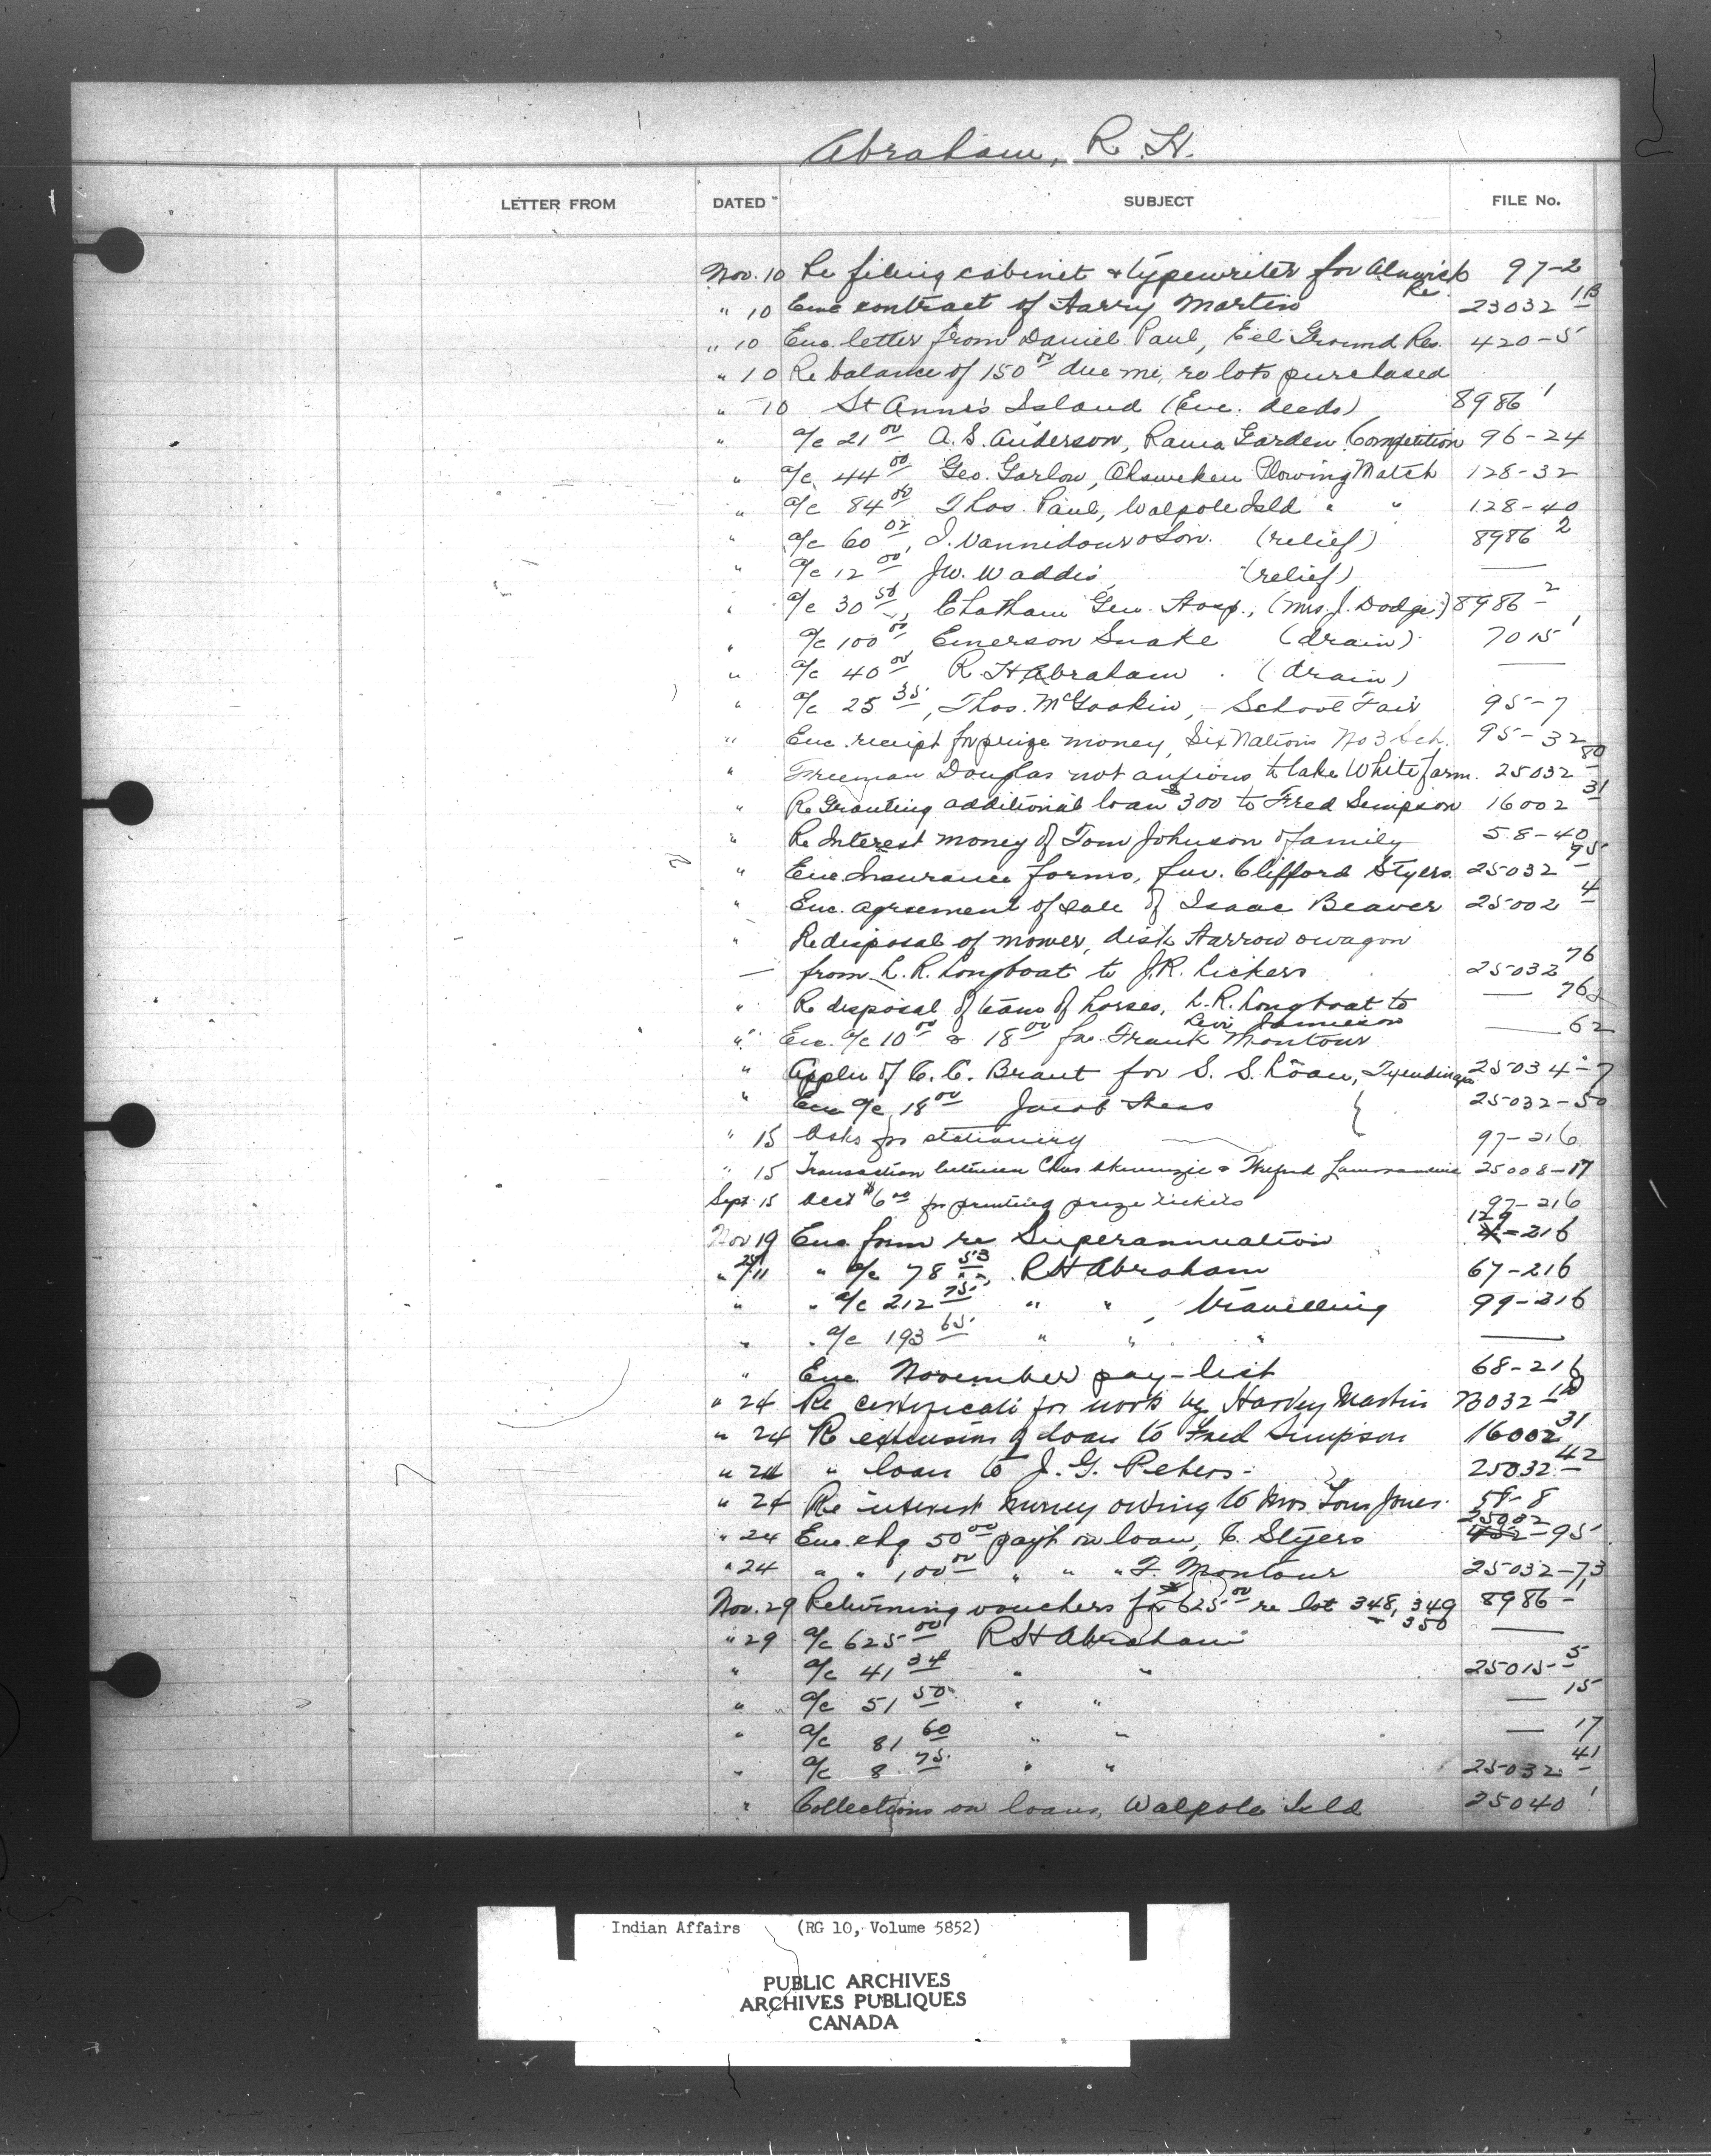 Abraham, R. H.
LETTER FROM DATED SUBJECT FILE No.
Nov. 10 Re filing cabinet & typewriter for Alnwick 97-2
Re.
" 10 Enc contract of Harry Martin 23032 1B
" 10 Enc. letter from Daniel Paul, Eel Ground Res. 420-5
" 10 Re balance of 150 00 due me, ro lots purchased
" 10 St Anne's Island (Enc. deeds) 8986 1
" a/c 21 00 A. S. Anderson, Rama Garden Competition 96-24
" a/c 44 00 Geo. Garlow, Ohsweken Plowing Match 128-32
" a/c 84 00 Thos. Paul, Walpole Isld " " 128-40
" a/c 60 02, J. & Son. (relief) 8986 2
" a/c 12 00, J.W. Waddis, (relief) —
" a/c 30 50, Chatham Gen. Hosp., (Mrs. J. Dodge) 8986 2
" a/c 100 00, Emerson Snake (drain) 7015 1
" a/c 40 00 R H Abraham (drain) —
" a/c 25 35, Thos. McGookin, School Fair 95-7
" Enc. receipt for prize money, Six Nations No 3 Sch. 95-32
" Freeman Douglas not anxious to take White farm. 25032 80
" Re Granting additional loan $300 to Fred Simpson 16002 31
" Re Interest money of Tom Johnson & family 58-40
" Enc. Insurance forms, fav. Clifford Styers 25032 95
" Enc. agreement of sale of Isaac Beaver 25002 4
" Re disposal of mower, disk Harrow & wagon
— from L. R. Longboat to J.R. Lickers 25032 76
" Re disposal of team of horses, L. R. Longboat to — 76
Levi Jamieson
" Enc. a/c 10 00 & 18 00 fav. Frank Montour — 62
" Appln of C. C. Brant for S. S. Loan, Tyendinaga 25034-7
" Enc a/c 18 00 Jacob Hess 25032-50
" 15 Asks for stationery 97-216
" 15 Transaction between Chas. & 25008-17
Sept 15 acct $6 00 for printing prize tickets 97-216
Nov 19 Enc. form re Superannuation 129-216
" 25/11 " a/c 78 53, R H Abraham 67-216
" " a/c 212 75 " " , travelling 99-216
" " a/c 193 65 " " " —
" Enc. November pay-list 68-216
" 24 Re certificate for work by Harvey Martin 23032-1B
" 24 Re extension of loan to Fred Simpson 16002 31
" 24 " loan to J. G. Peters 25032 42
" 24 Re interest money owing to Mrs Tom Jones 58-8
" 24 Enc. chq. 50 00 payt on loan, C. Styers 25032-95
" 24 " " 100 00 " " " F. Montour 25032-73
Nov. 29 Returning vouchers for 625 00 re lot 348, 349 8986 1
350
" 29 a/c 625 00 R H Abraham —
" a/c 41 34 " " 25015-5
" a/c 51 50 " " — 15
" a/c 81 60 " " — 17
" a/c 8 75 " " 25032 41
" Collections on loans, Walpole Isld 25040 1
Indian Affairs (RG 10, Volume 5852)
PUBLIC ARCHIVES
ARCHIVES PUBLIQUES
CANADA